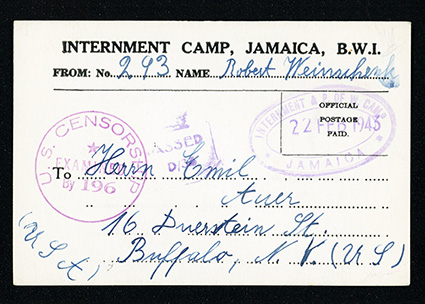 INTERNMENT CAMP, JAMAICA, B.W.I.
FROM: No. 293 NAME Robert Weinschenk
OFFICIAL
POSTAGE
PAID.
INTERNMENT & P. OF W. CAMP
22 FEB 1945
JAMAICA
U.S. CENSORSHIP
EXAMINED
By 196
PASSED
To Herrn Emil
Auer
16 Duerstein St.
Buffalo, N. Y. (U S)
(U S A)